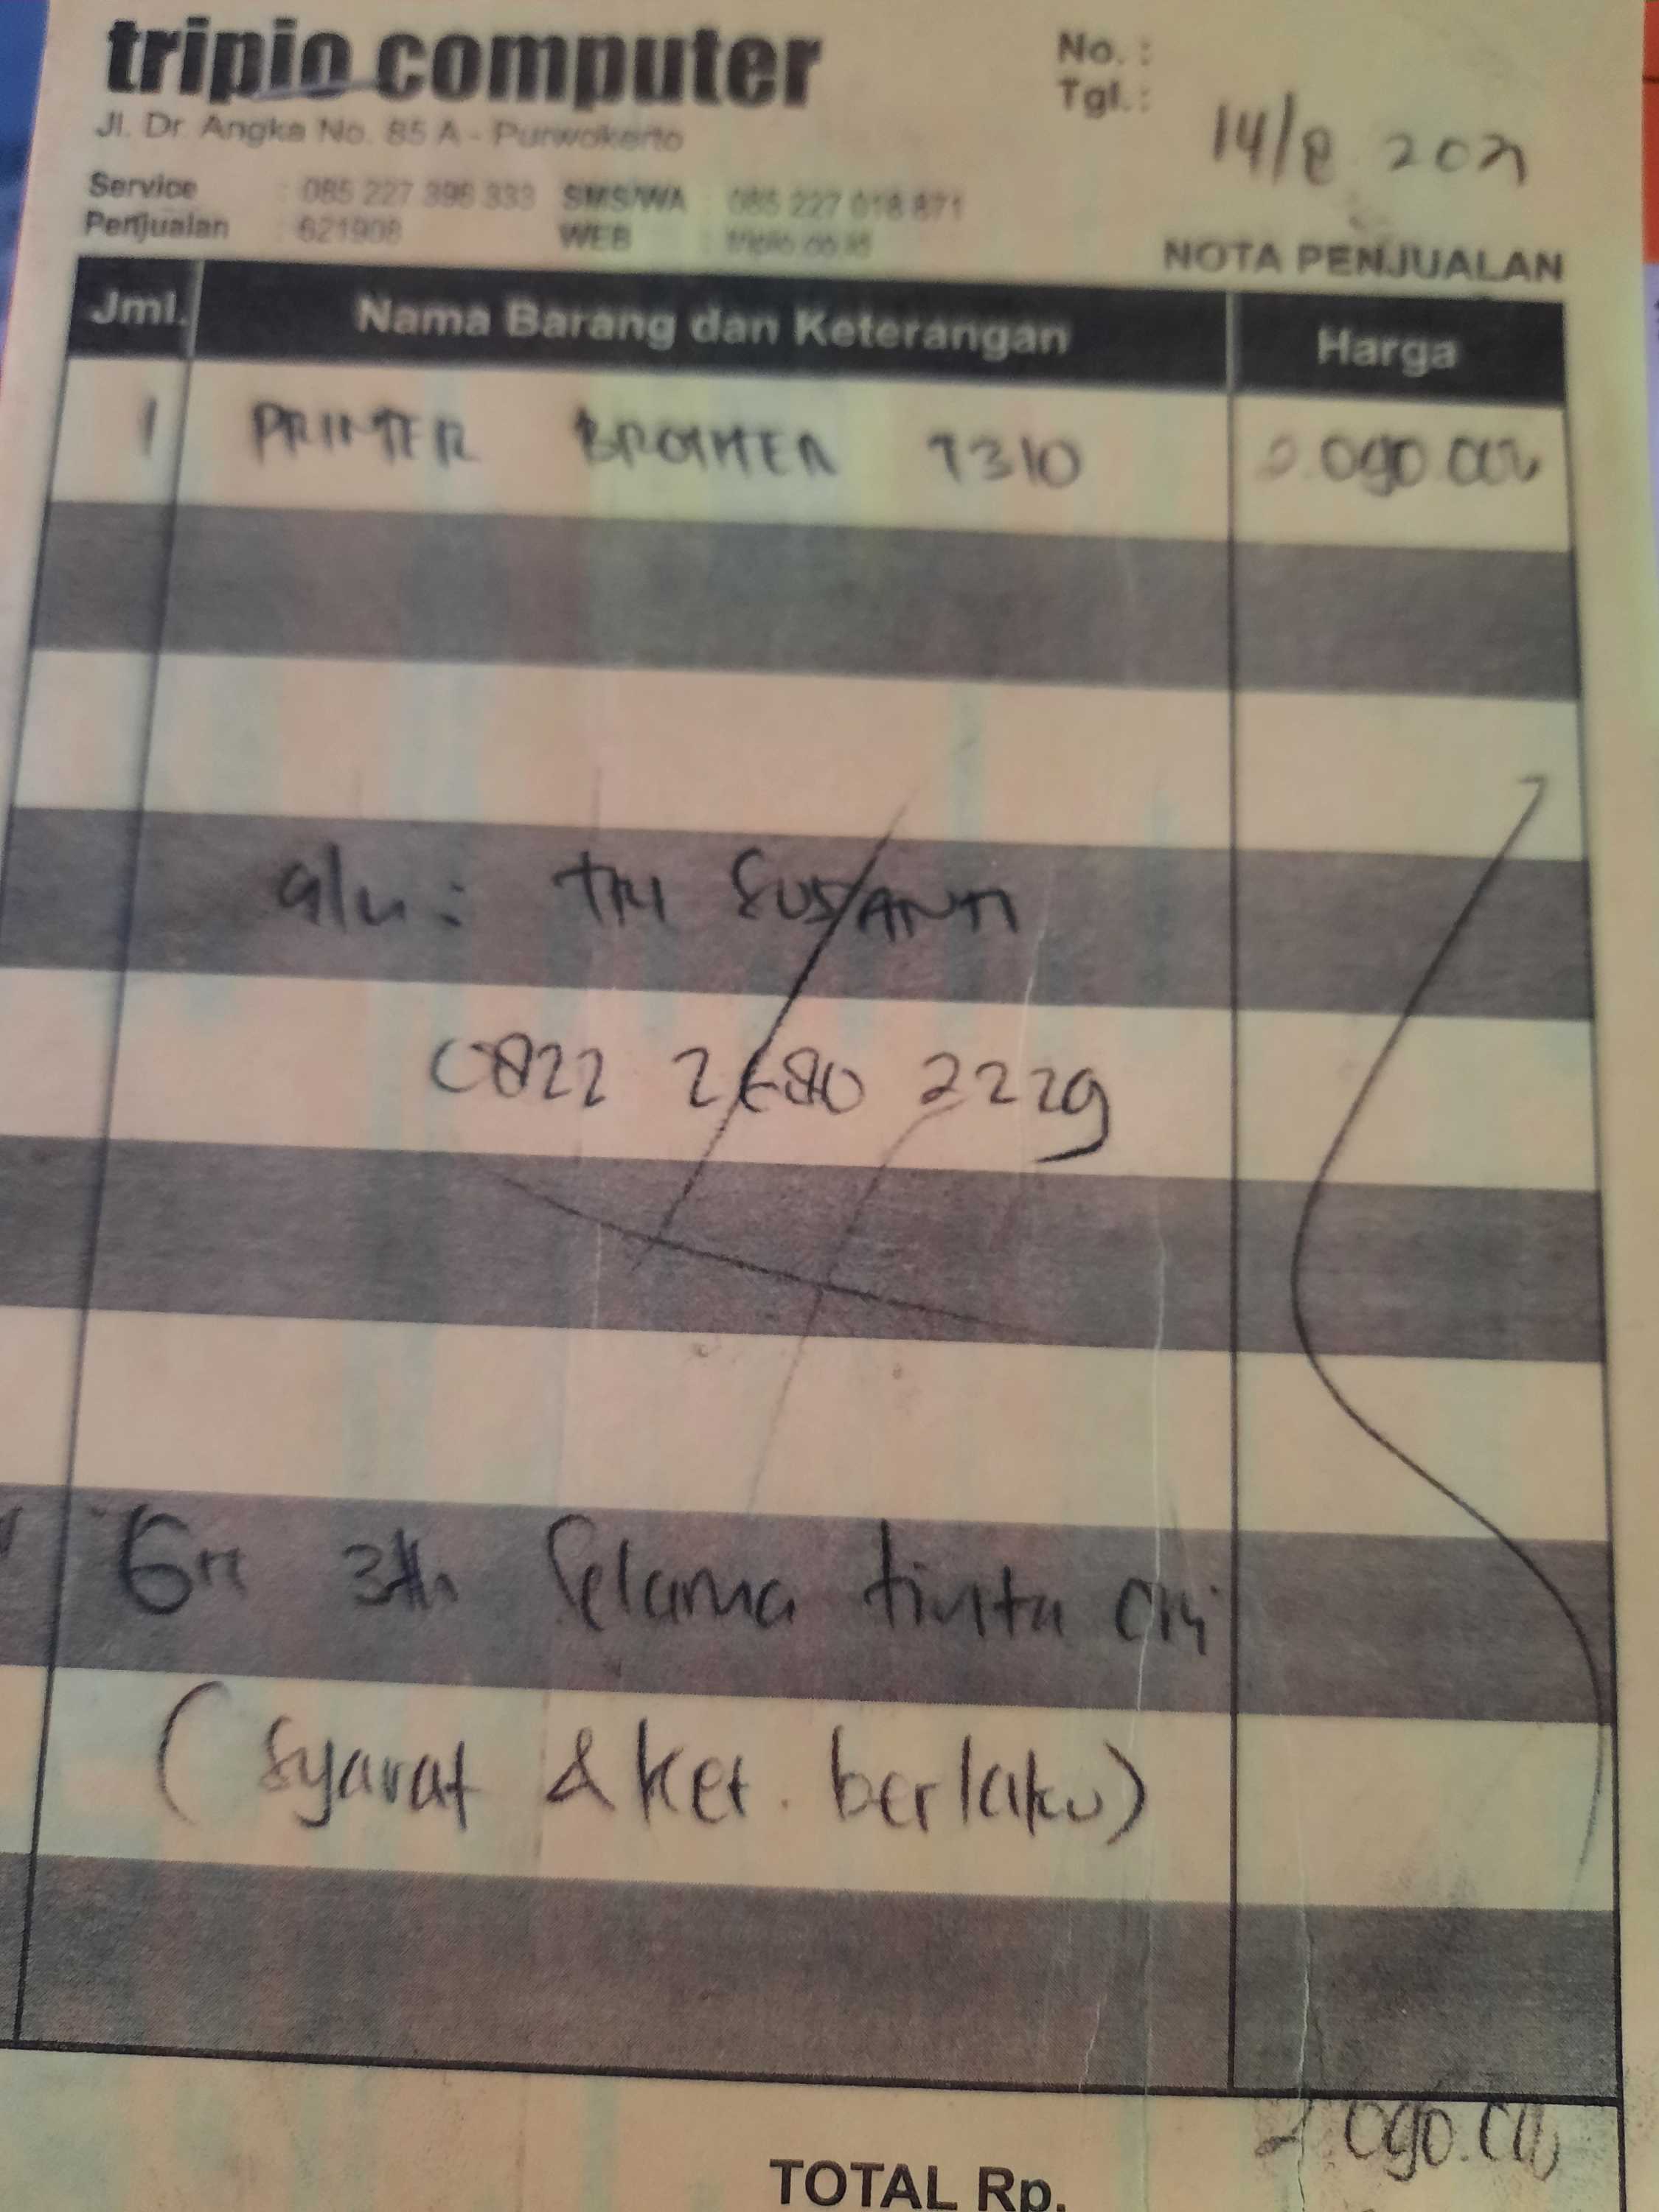 tripio computer
No. :
Tgl. : 14/8 2021
Jl. Dr. Angka No. 85 A - Purwokerto
Service : 085 227 396 333 SMS/WA : 085 227 018 871
Penjualan : 621908 WEB : tripio.co.id
NOTA PENJUALAN
Jml. Nama Barang dan Keterangan Harga
1 PRINTER BROTHER 2.090.000
a/n : TRI SUSANTI
0822 2680 2229
3th Selama tinta ori
(Syarat & ket. berlaku)
2.090.000
TOTAL Rp.